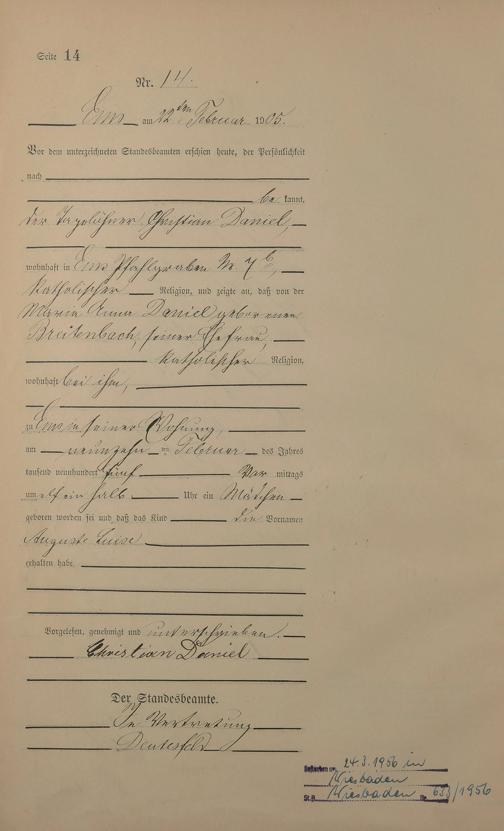 Seite 14
Nr. 14.
Ems am 22ten Februar 1905.
Vor dem unterzeichneten Standesbeamten erschien heute, der Persönlichkeit
nach
be kannt,
der Tagelöhner Christian Daniel,
wohnhaft in Ems Pfahlgraben No 7b,
katholischer Religion, und zeigte an, daß von der
Maria Anna Daniel geborenen
Breitenbach, seiner Ehefrau,
katholischer Religion,
wohnhaft bei ihm,
zu Ems in seiner Wohnung,
am neunzehnten Februar des Jahres
tausend neunhundert fünf Vor mittags
um elf ein halb Uhr ein Mädchen
geboren worden sei und daß das Kind die Vornamen
Auguste Luise
erhalten habe.
Vorgelesen, genehmigt und unterschrieben.
Christian Daniel
Der Standesbeamte.
In Vertretung
Gestorben am 24.3.1956 in
Wiesbaden
St.A. Wiesbaden Nr. /1956